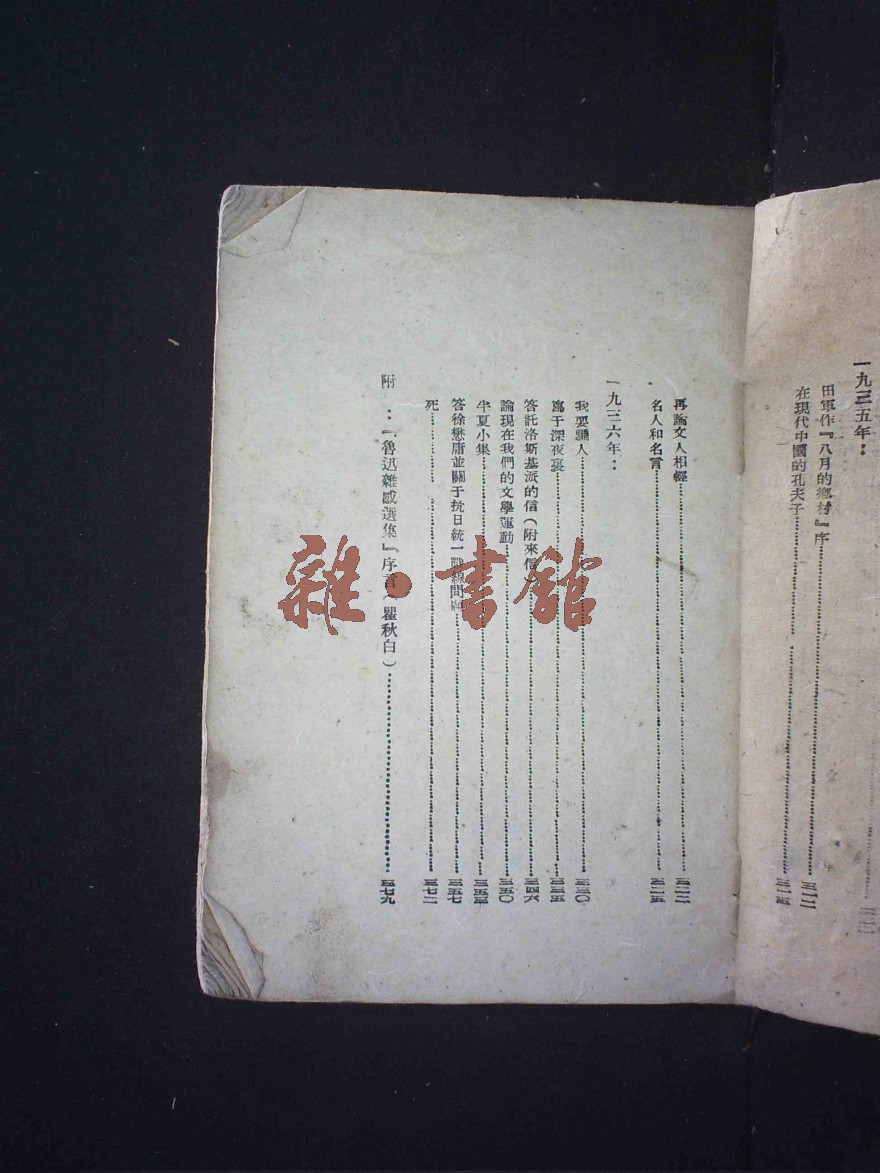 一九三五年：
田軍作『八月的鄉村』序
在現代中國的孔夫子
再論文人相輕
名人和名言
一九三六年：
我要騙人 三三〇
寫于深夜裏
答託洛斯基派的信（附來信） 三四六
論現在我們的文學運動 三五〇
半夏小集
答徐懋庸並關于抗日統一戰線問題 三五七
死 三七二
附：『魯迅雜感選集』序言（瞿秋白） 三七九
雜·書館